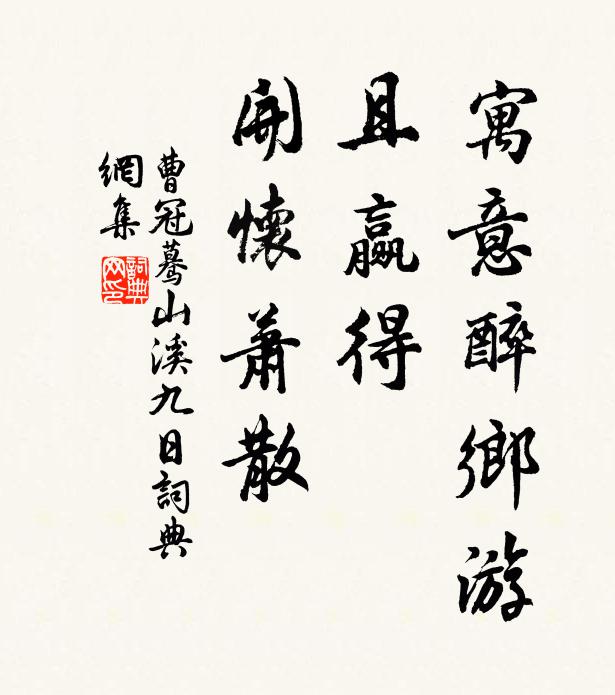 寓意醉鄉游
且贏得
開懷蕭散
曹冠驀山溪九日詞典
網集
詞典
网印